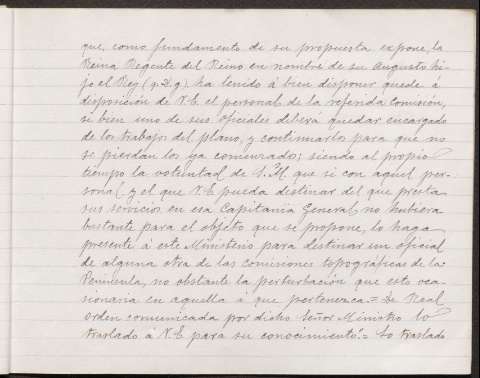 que, como fundamento de su propuesta expone, la
Reina Regente del Reino en nombre de su Augusto hi-
jo el Rey (q. D. g.) ha tenido á bien disponer quede á
disposicion de V.E. el personal de la referida comisión,
si bien uno de sus oficiales deberá quedar encargado
de los trabajos del plano, y continuarlos para que no
se pierdan los ya comenzados; siendo al propio
tiempo la voluntad de S.M. que si con aquel per-
sonal y el que V.E. pueda destinar del que presta
sus servicios en esa Capitanía General, no hubiera
bastante para el objeto que se propone, lo haga
presente á este Ministerio para destinar un oficial
de alguna otra de las comisiones topográficas de la
Península, no obstante la perturbación que esto oca-
sionaria en aquella á que pertenezca.= De Real
orden comunicada por dicho Señor Ministro lo
traslado á V.E. para su conocimiento".= Lo traslado